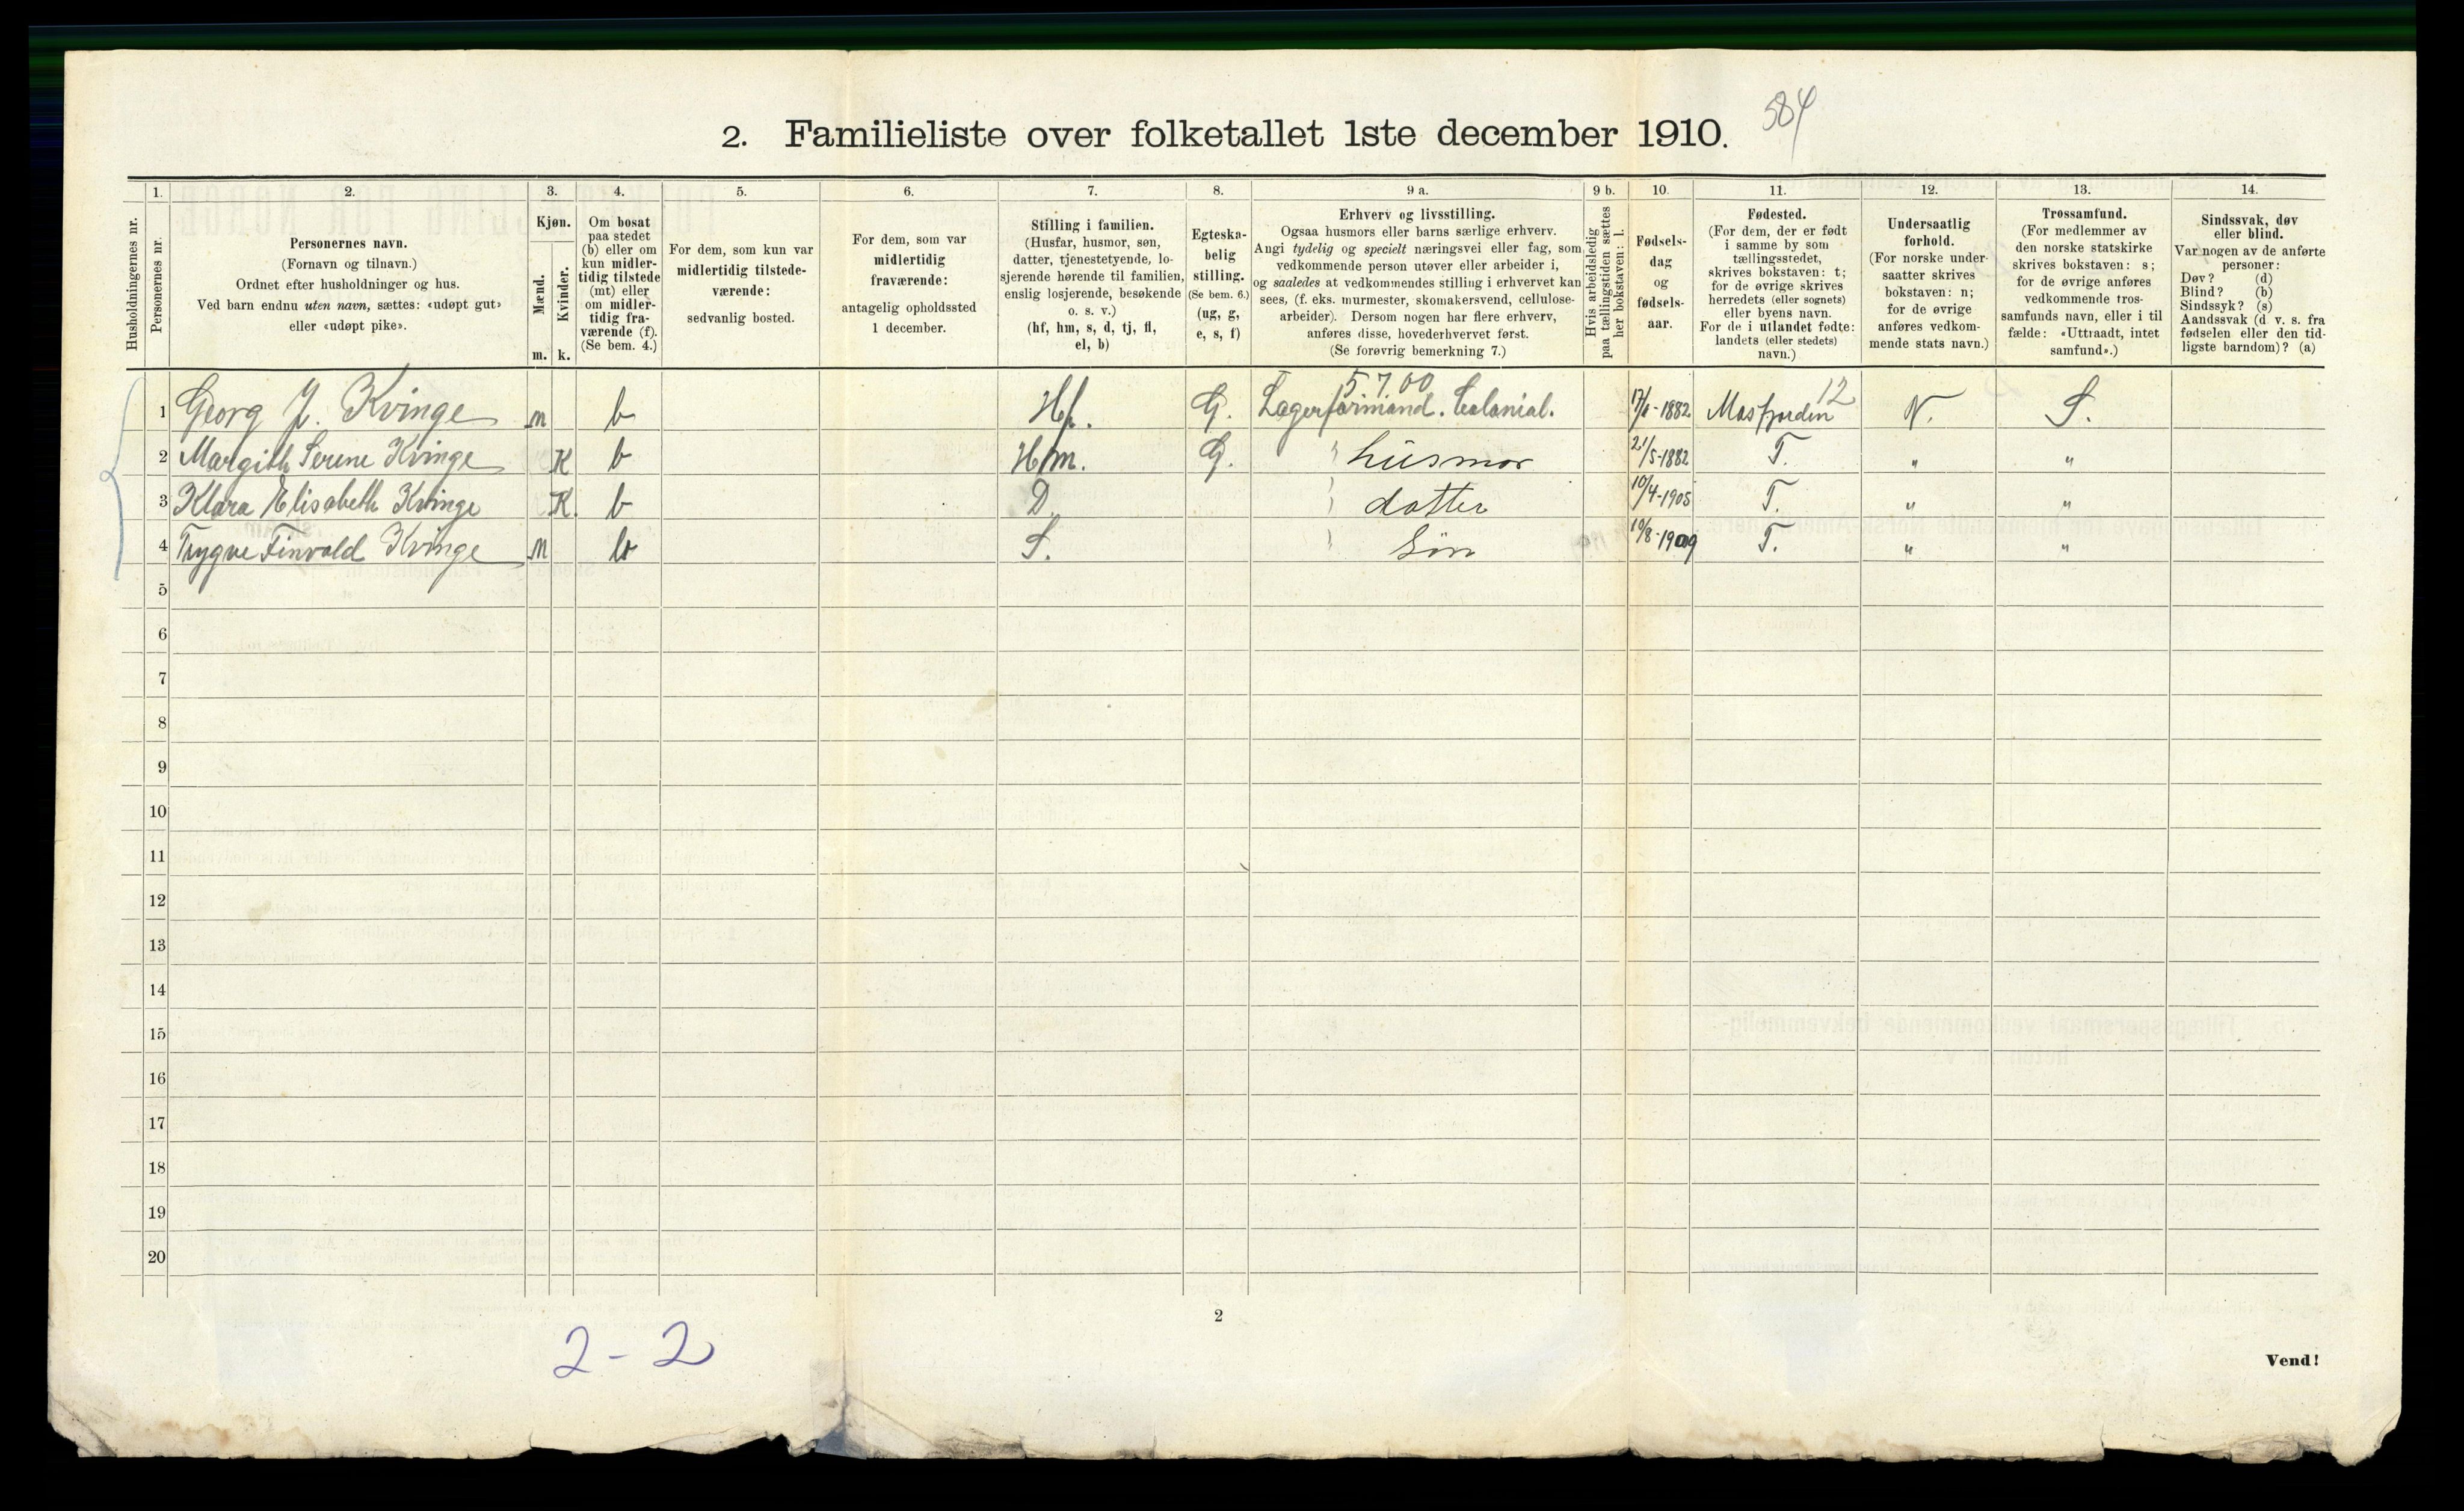 2. Familieliste over folketallet 1ste december 1910. 584
Husholdningernes nr.
1.
Personernes nr.
2.
Personernes navn.
(Fornavn og tilnavn.)
Ordnet efter husholdninger og hus.
Ved barn endnu uten navn, sættes: «udøpt gut»
eller «udøpt pike».
3.
Kjøn.
Mænd.
Kvinder.
m. k.
4.
Om bosat
paa stedet
(b) eller om
kun midler-
tidig tilstede
(mt) eller
om midler-
tidig fra-
værende (f).
(Se bem. 4.)
5.
For dem, som kun var
midlertidig tilstede-
værende:
sedvanlig bosted.
6.
For dem, som var
midlertidig
fraværende:
antagelig opholdssted
1 december.
7.
Stilling i familien.
(Husfar, husmor, søn,
datter, tjenestetyende, lo-
sjerende hørende til familien,
enslig losjerende, besøkende
o. s. v.)
(hf, hm, s, d, tj, fl,
el, b)
8.
Egteska-
belig
stilling.
(Se bem. 6.)
(ug, g,
e, s, f)
9 a.
Erhverv og livsstilling.
Ogsaa husmors eller barns særlige erhverv.
Angi tydelig og specielt næringsvei eller fag, som
vedkommende person utøver eller arbeider i,
og saaledes at vedkommendes stilling i erhvervet kan
sees, (f. eks. murmester, skomakersvend, cellulose-
arbeider). Dersom nogen har flere erhverv,
anføres disse, hovederhvervet først.
(Se forøvrig bemerkning 7.)
9 b.
Hvis arbeidsledig
paa tællingstiden sættes
her bokstaven: l.
10.
Fødsels-
dag
og
fødsels-
aar.
11.
Fødested.
(For dem, der er født
i samme by som
tællingsstedet,
skrives bokstaven: t;
for de øvrige skrives
herredets (eller sognets)
eller byens navn.
For de i utlandet fødte:
landets (eller stedets)
navn.)
12.
Undersaatlig
forhold.
(For norske under-
saatter skrives
bokstaven: n;
for de øvrige
anføres vedkom-
mende stats navn.)
13.
Trossamfund.
(For medlemmer av
den norske statskirke
skrives bokstaven: s;
for de øvrige anføres
vedkommende tros-
samfunds navn, eller i til
fælde: «Uttraadt, intet
samfund».)
14.
Sindssvak, døv
eller blind.
Var nogen av de anførte
personer:
Døv? (d)
Blind? (b)
Sindssyk? (s)
Aandssvak (d v. s. fra
fødselen eller den tid-
ligste barndom)? (a)
5700 12
1 Georg J. Kvinge m b Hf. G. Lagerformand. Colonial. 17/1-1882 Masfjorden N. S.
2 Margith Serine Kvinge K b Hm. G. " husmor 21/5-1882 T. " "
3 Klara Elisabeth Kvinge K. b D. " datter 10/4-1905 T. " "
4 Trygve Finvald Kvinge m b S. " Søn 10/8-1909 T. " "
5
6
7
8
9
10
11
12
13
14
15
16
17
18
19
20
2
2-2
Vend!